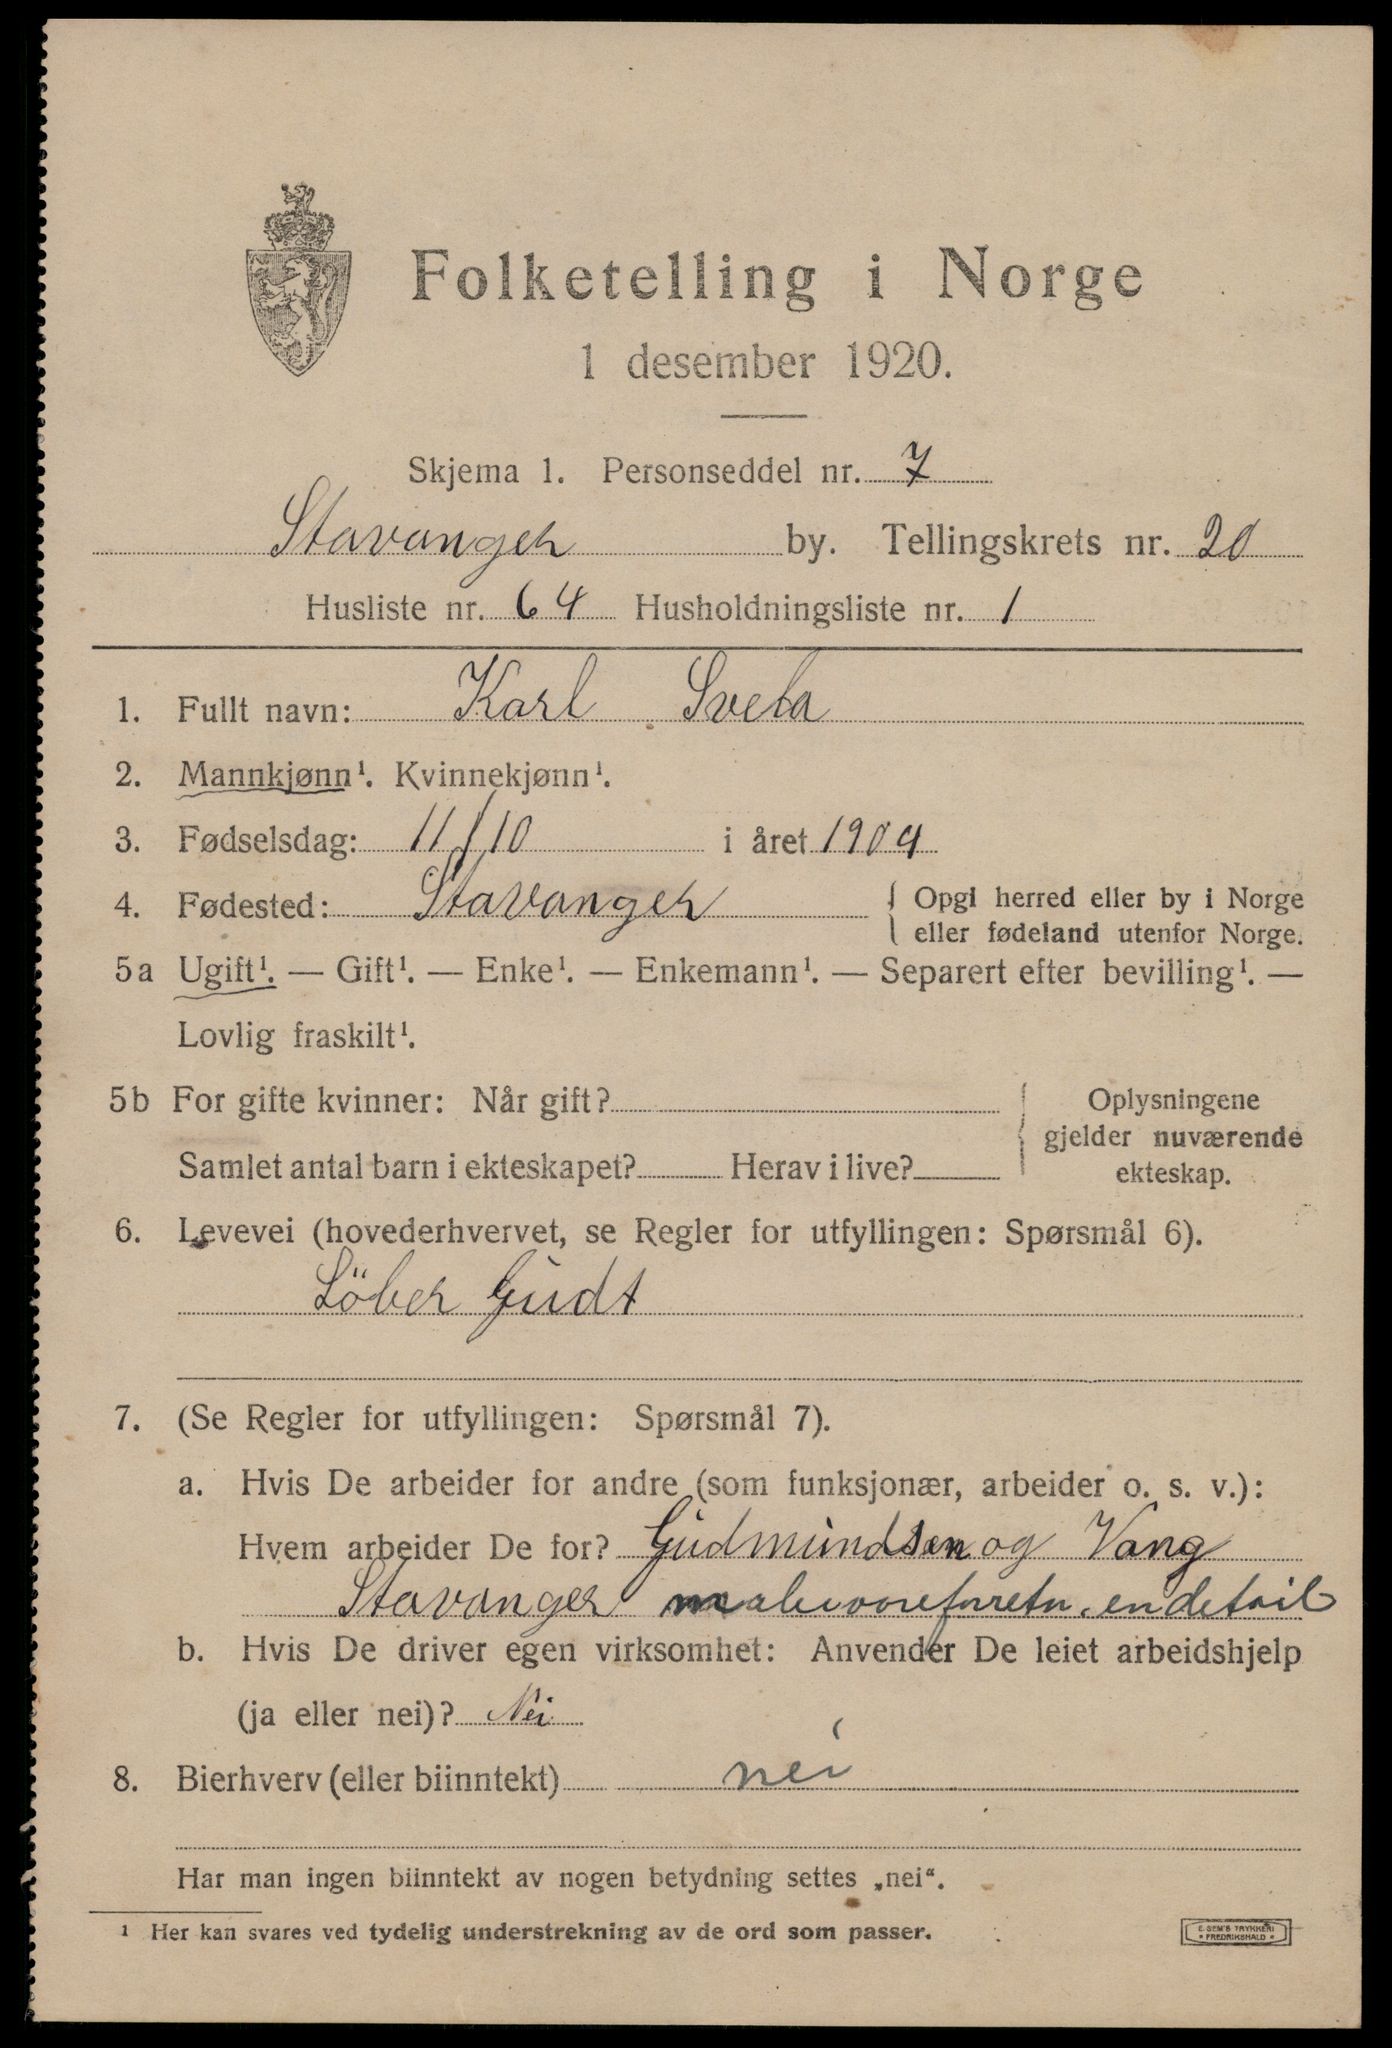 Folketelling i Norge
1 desember 1920.
Skjema 1. Personseddel nr. 7
Stavanger by. Tellingskrets nr. 20
Husliste nr. 64 Husholdningsliste nr. 1
1. Fullt navn: Karl Svela
2. Mannkjønn¹. Kvinnekjønn¹.
3. Fødselsdag: 11/10 i året 1904
4. Fødested: Stavanger { Opgi herred eller by i Norge
eller fødeland utenfor Norge.
5a Ugift¹. — Gift¹. — Enke¹. — Enkemann¹. — Separert efter bevilling¹. —
Lovlig fraskilt¹.
5b For gifte kvinner: Når gift? { Oplysningene
gjelder nuværende
Samlet antal barn i ekteskapet? Herav i live? ekteskap.
6. Levevei (hovederhvervet, se Regler for utfyllingen: Spørsmål 6).
Löber Gudt
7. (Se Regler for utfyllingen: Spørsmål 7).
a. Hvis De arbeider for andre (som funksjonær, arbeider o. s. v.):
Hvem arbeider De for? Gudmundsen og Vang
Stavanger malevareforretn. endetail
b. Hvis De driver egen virksomhet: Anvender De leiet arbeidshjelp
(ja eller nei)? Nei
8. Bierhverv (eller biinntekt) nei
Har man ingen biinntekt av nogen betydning settes „nei“.
¹ Her kan svares ved tydelig understrekning av de ord som passer.
E. SEM'S TRYKKERI
* FREDRIKSHALD *